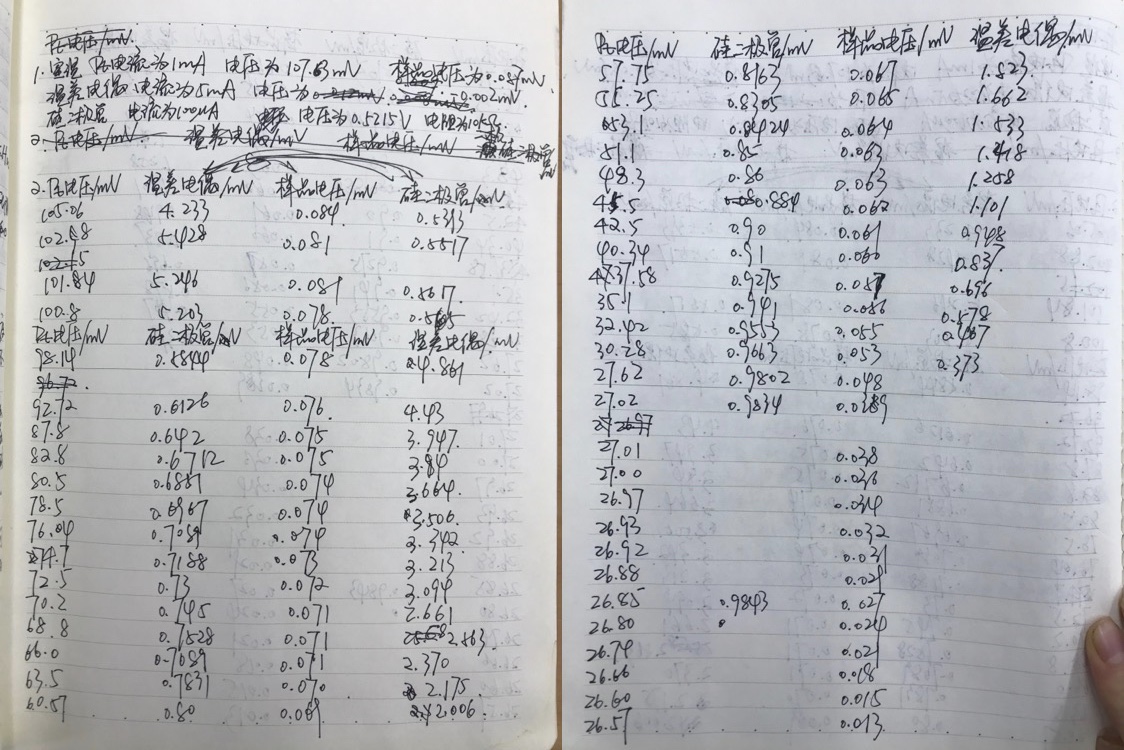 1. 室温 Pt电流为1mA 电压为107.63mV 样品电压为0.087mV
温差电偶 电流为5mA 电压为 -0.002mV.
硅二极管 电流为100μA 电压为0.5215V 电阻为
2. Pt电压/mV 温差电偶/mV 样品电压/mV 硅二极管/mV
105.06 4.233 0.084 0.5343
102.48 5.428 0.081 0.5517
101.84 5.246 0.081 0.5617
100.8 5.203 0.078
Pt电压/mV 硅二极管/mV 样品电压/mV 温差电偶/mV
98.14 0.5844 0.078 4.861
92.72 0.6126 0.076 4.43
87.8 0.642 0.075 3.947
82.8 0.6712 0.075 3.84
80.5 0.6851 0.074 3.664
78.5 0.6967 0.074 3.506
76.04 0.7089 0.074 3.342
74.7 0.7188 0.073 3.213
72.5 0.73 0.072 3.094
70.2 0.745 0.071 2.661
68.8 0.7528 0.071 2.563
66.0 0.7689 0.071 2.370
63.5 0.7831 0.070 2.175
60.57 0.80 0.069 2.006
Pt电压/mV 硅二极管/mV 样品电压/mV 温差电偶/mV
57.75 0.8163 0.067 1.823
55.25 0.8305 0.065 1.662
53.1 0.8424 0.064 1.533
51.1 0.85 0.063 1.418
48.3 0.86 0.063 1.258
45.5 0.884 0.062 1.101
42.5 0.90 0.061 0.948
40.34 0.91 0.060 0.837
37.58 0.9275 0.057 0.696
35.1 0.941 0.056 0.578
32.42 0.9553 0.055 0.467
30.28 0.9663 0.053 0.373
27.62 0.9802 0.048
27.02 0.9834
27.01 0.038
27.00 0.036
26.97 0.034
26.93 0.032
26.92 0.031
26.88 0.029
26.85 0.9843 0.027
26.80 0.024
26.74 0.021
26.66 0.018
26.60 0.015
26.57 0.013